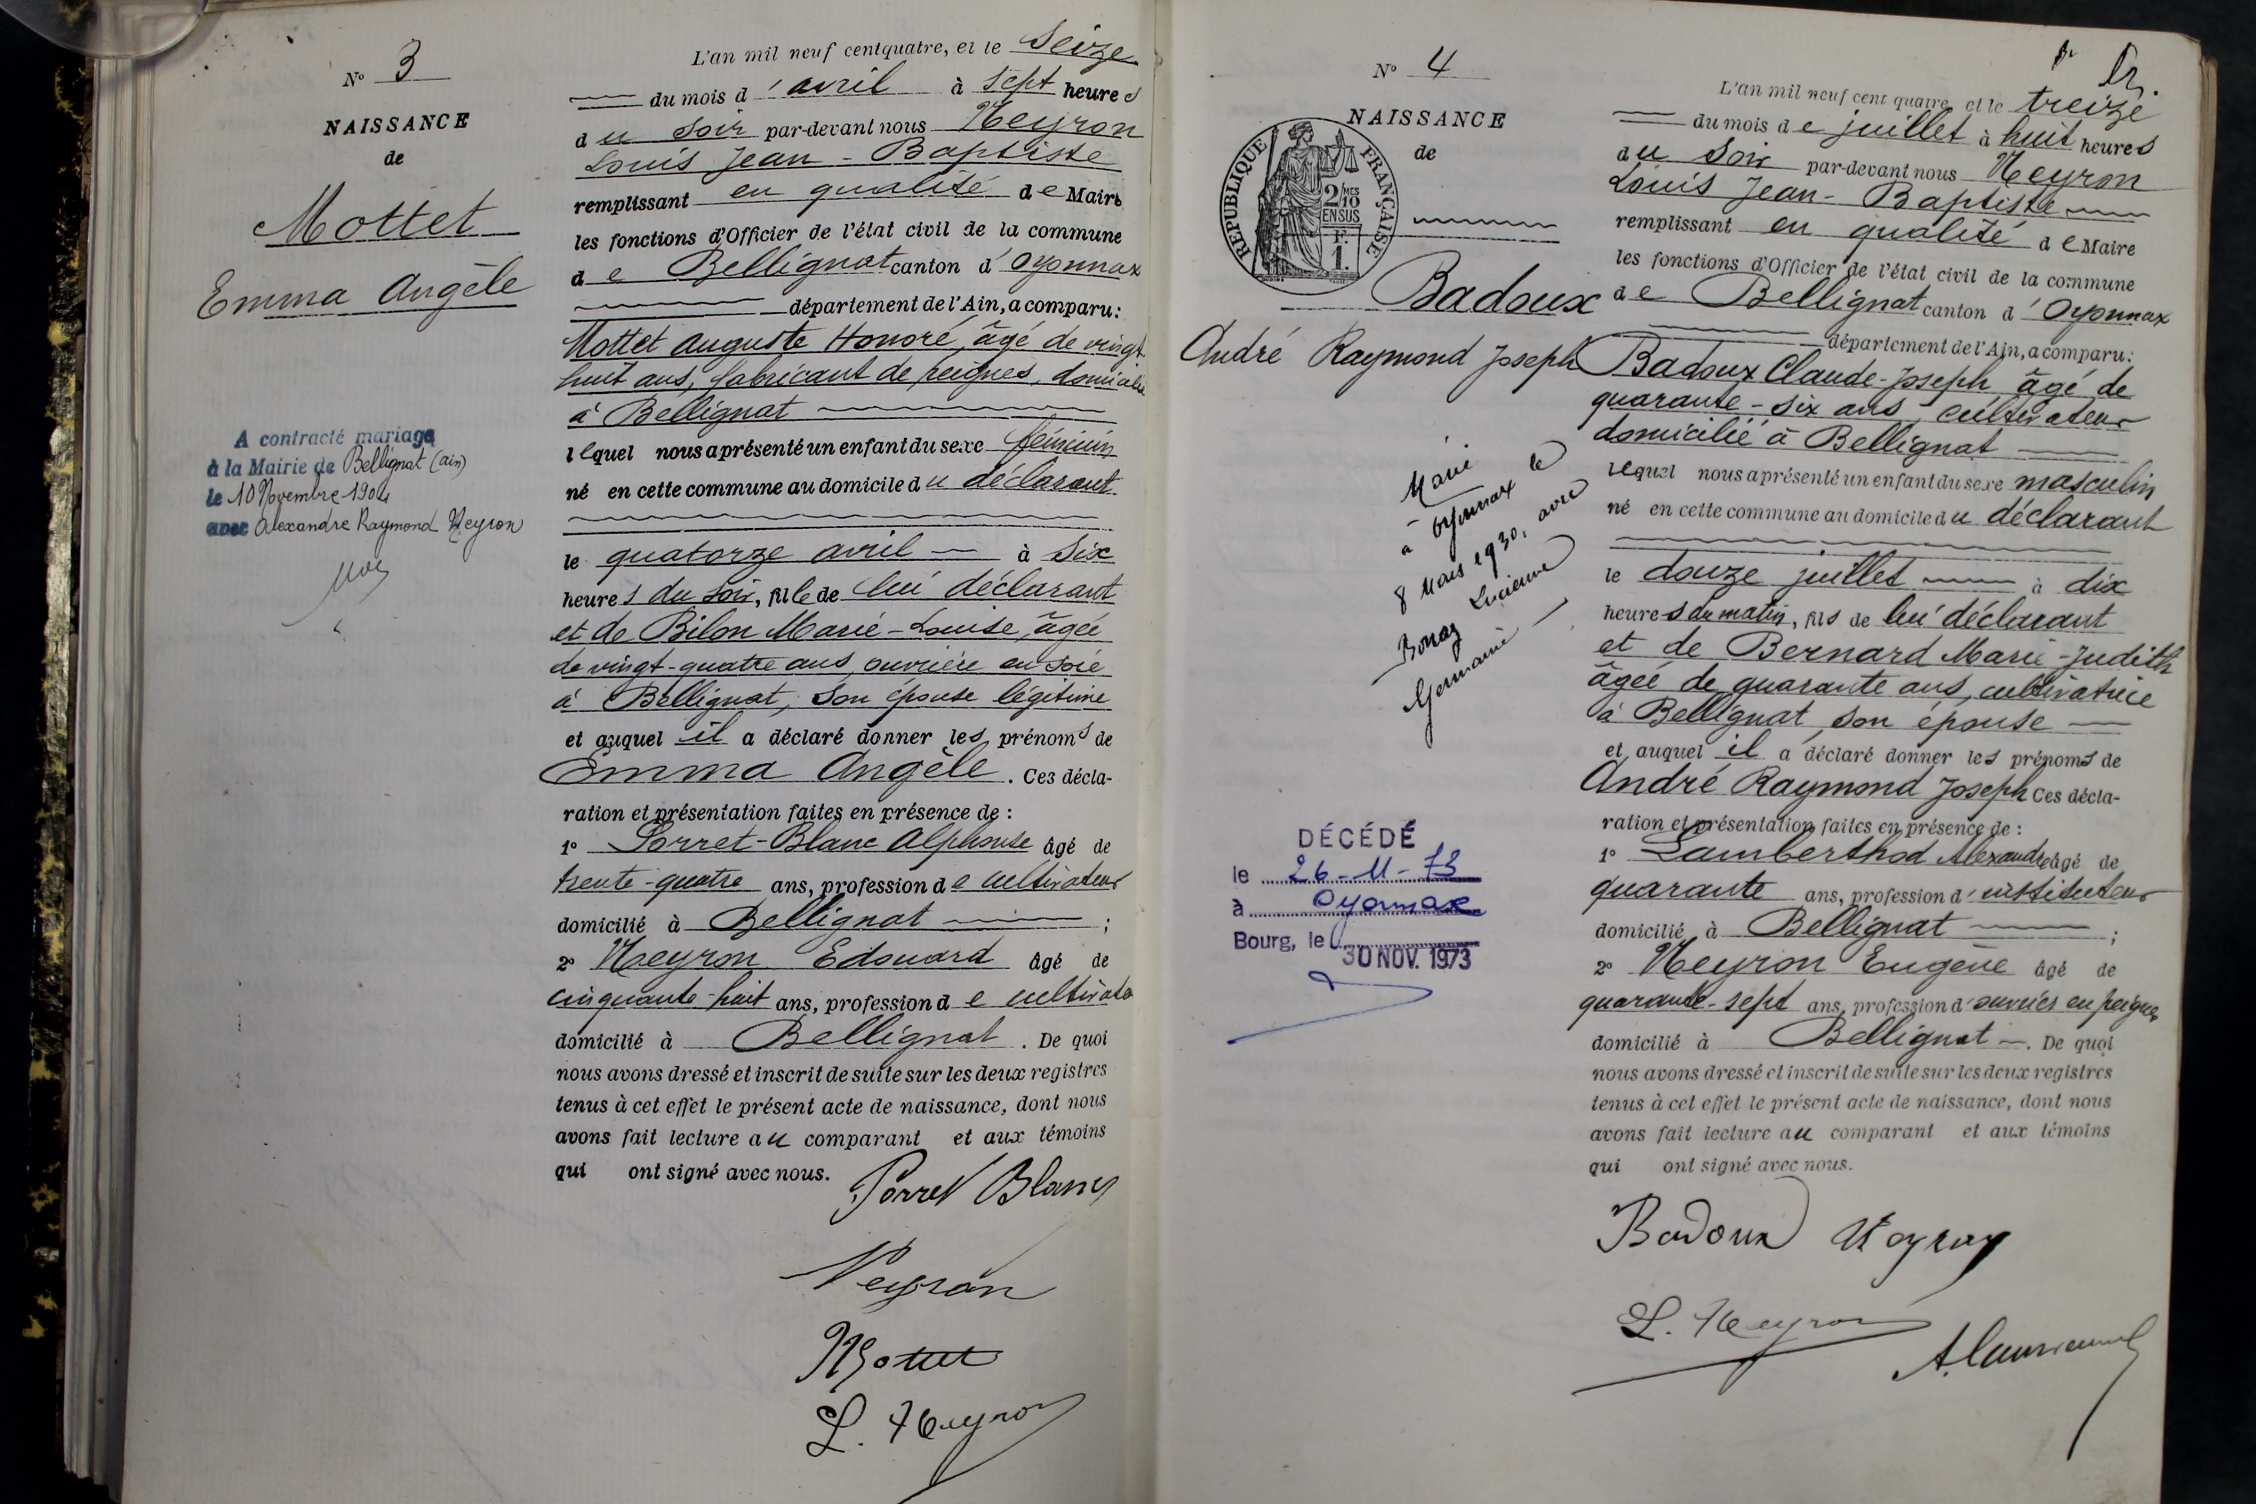 N° 3
NAISSANCE
de
Mottet
Emma Angèle
A contracté mariage
à la Mairie de Bellignat (Ain)
le 10 Novembre 1924
avec Alexandre Raymond Neyron
L'an mil neuf cent quatre, et le Seize
du mois d'avril à Sept heures
du soir par-devant nous Neyron
Louis Jean-Baptiste
remplissant en qualité de Maire
les fonctions d'Officier de l'état civil de la commune
de Bellignat canton d'Oyonnax
département de l'Ain, a comparu:
Mottet Auguste Honoré, âgé de vingt
huit ans, fabricant de peignes, domicilié
à Bellignat
lequel nous a présenté un enfant du sexe féminin
né en cette commune au domicile du déclarant
le quatorze avril à Six
heures du soir, fille de lui déclarant
et de Bilon Marie-Louise, âgée
de vingt-quatre ans, ouvrière en soie
à Bellignat, son épouse légitime
et auquel il a déclaré donner les prénoms de
Emma Angèle. Ces décla-
ration et présentation faites en présence de :
1° Porret-Blanc Alphonse âgé de
trente-quatre ans, profession de cultivateur
domicilié à Bellignat ;
2° Neyron Edouard âgé de
cinquante-huit ans, profession de cultivateur
domicilié à Bellignat. De quoi
nous avons dressé et inscrit de suite sur les deux registres
tenus à cet effet le présent acte de naissance, dont nous
avons fait lecture au comparant et aux témoins
qui ont signé avec nous.
Porret Blanc
Neyron
Mottet
L. Neyron
N° 4
NAISSANCE
de
RÉPUBLIQUE FRANÇAISE
2/10
EN SUS
1 F.
Badoux
André Raymond Joseph
Marié
à Oyonnax le
8 Mars 1930, avec
Bonaz Lucienne
Germaine
DÉCÉDÉ
le 26-11-73
à Oyonnax
Bourg, le 30 NOV. 1973
L'an mil neuf cent quatre, et le treize
du mois de juillet à huit heures
du soir par-devant nous Neyron
Louis Jean-Baptiste
remplissant en qualité de Maire
les fonctions d'Officier de l'état civil de la commune
de Bellignat canton d'Oyonnax
département de l'Ain, a comparu:
Badoux Claude-Joseph âgé de
quarante-six ans, cultivateur
domicilié à Bellignat
lequel nous a présenté un enfant du sexe masculin
né en cette commune au domicile du déclarant
le douze juillet à dix
heures du matin, fils de lui déclarant
et de Bernard Marie-Judith
âgée de quarante ans, cultivatrice
à Bellignat, son épouse
et auquel il a déclaré donner les prénoms de
André Raymond Joseph Ces décla-
ration et présentation faites en présence de :
1° Lamberthod Alexandre âgé de
quarante ans, profession d'instituteur
domicilié à Bellignat ;
2° Neyron Eugène âgé de
quarante-sept ans, profession d'ouvrier en peignes
domicilié à Bellignat. De quoi
nous avons dressé et inscrit de suite sur les deux registres
tenus à cet effet le présent acte de naissance, dont nous
avons fait lecture au comparant et aux témoins
qui ont signé avec nous.
Badoux Neyron
L. Neyron